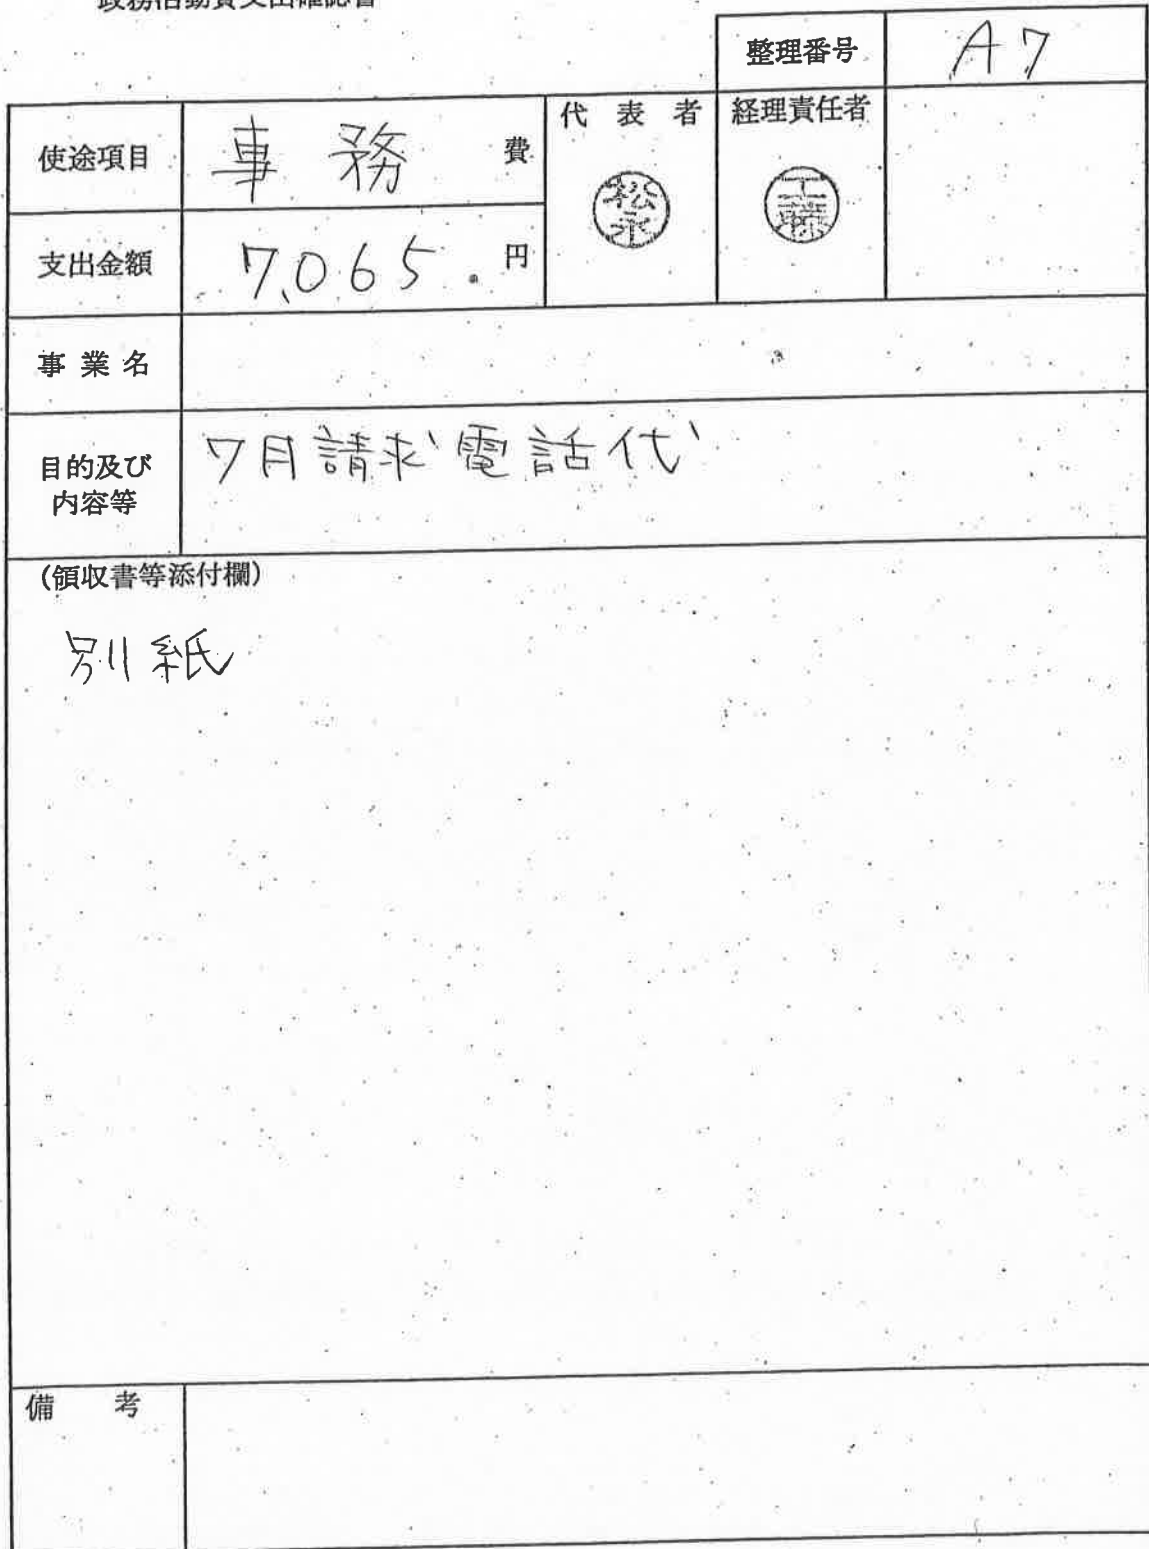 政務活動費支出確認書
整理番号 A7
使途項目 事務費
代表者 経理責任者
松永 工藤
支出金額 7,065.円
事業名
目的及び内容等 7月請求電話代
(領収書等添付欄)
別紙
備考